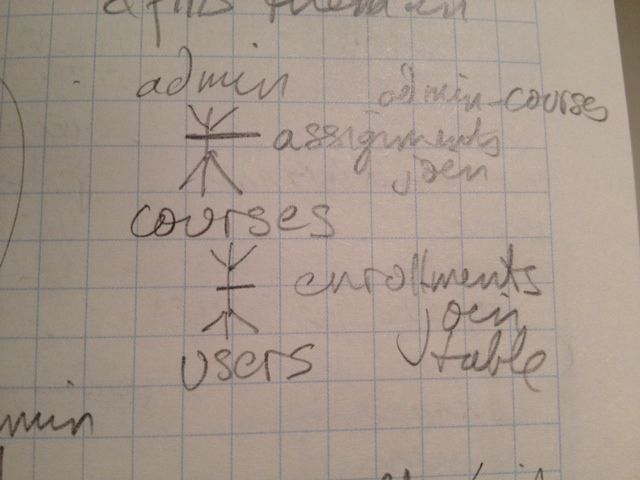 admin
admin-courses
assignments
join
courses
enrollments
join
table
users
min